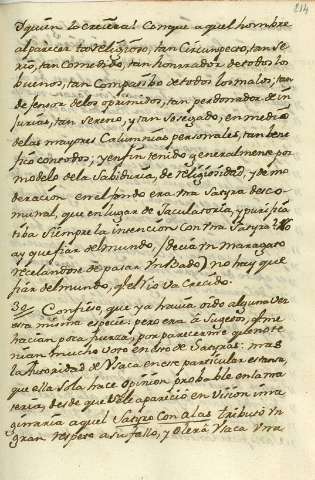 214
Y quien lo creiera! Conque aquel hombre
al parecer tan religioso, tan Circunspecto, tan Se-
rio, tan Comedido, tan honrador de todos los
buenos, tan Compasibo de todos los malos; tan
defensor de los oprimidos, tan perdonador de in-
jurias, tan Sereno, y tan Sosegado, en medio
de las mayores Calumnias personales, tan bene-
fico con todos; y en fin tenido generalmente por
modelo de la Sabiduria, de religiosidad, y de mo-
deracion en el fondo era otra Satyra desco-
munal, que en lugar de Jaculatoria, y purifica-
tiba Siempre la intencion contra Satyra: No
ay que fiar del mundo, (decia un Maragato
recelandose de pasar un Bado) no hay que
fiar del mundo, q.e el rio va Crecido.
39 Confieso, que ya havia oido alguna vez
esta misma especie; pero era a Sugetos, q.e me
hacian poca fuerza, por parecerme que no te-
nian mucho voto en esto de Satyras: mas
la Autoridad de Usaca en este particular es tanta,
que ella Sola hace opinion probable en la ma-
teria, desde que se le aparecio en Vision ima-
ginaria aquel Satyro Con alas tributo un
gran respeto a su fallo, y olerá Usaca una